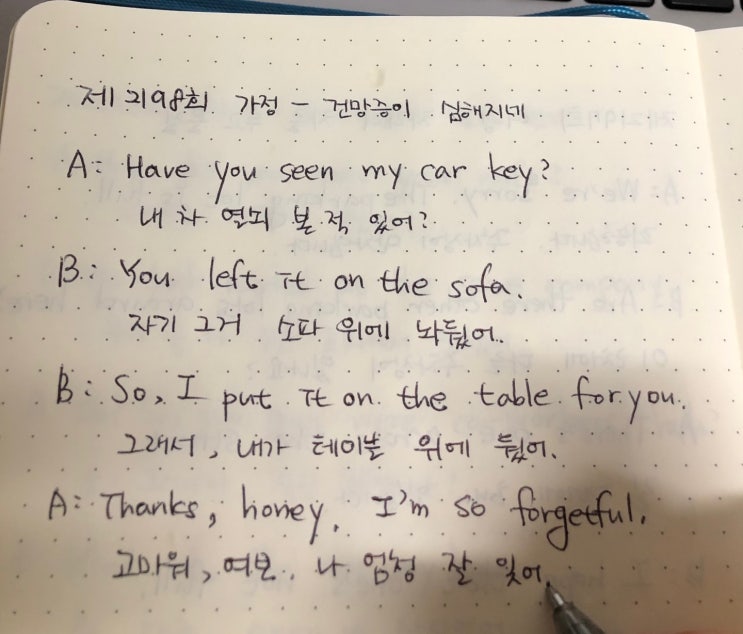 제1298회 가정 - 건망증이 심해지네
A: Have you seen my car key?
내 차 열쇠 본 적 있어?
B: You left it on the sofa
자기 그거 소파 위에 놔뒀어.
B: So, I put it on the table for you.
그래서, 내가 테이블 위에 뒀어.
A: Thanks, honey. I'm so forgetful.
고마워, 여보. 나 엄청 잘 잊어.